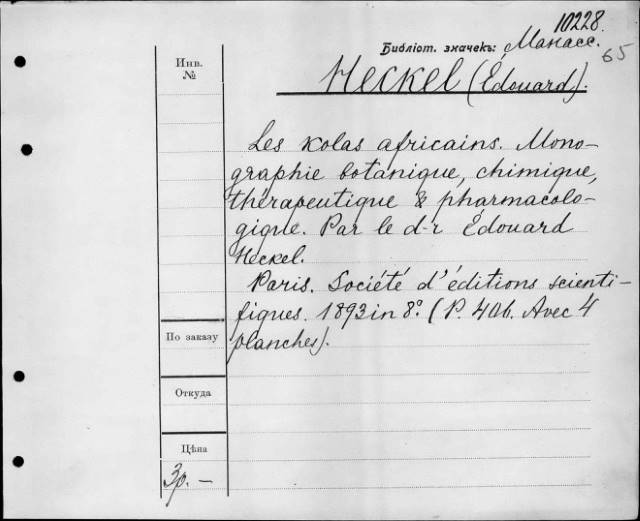 10228.
Библіот. значекъ: Манасс.
65
Инв.
№
Heckel (Édouard).
Les kolas africains. Mono-
graphie botanique, chimique,
thérapeutique & pharmacolo-
gique. Par le d-r Édouard
Heckel.
Paris. Société d'éditions scienti-
fiques. 1893 in 8º. (P. 406. Avec 4
planches).
По заказу
Откуда
Цѣна
3р. –